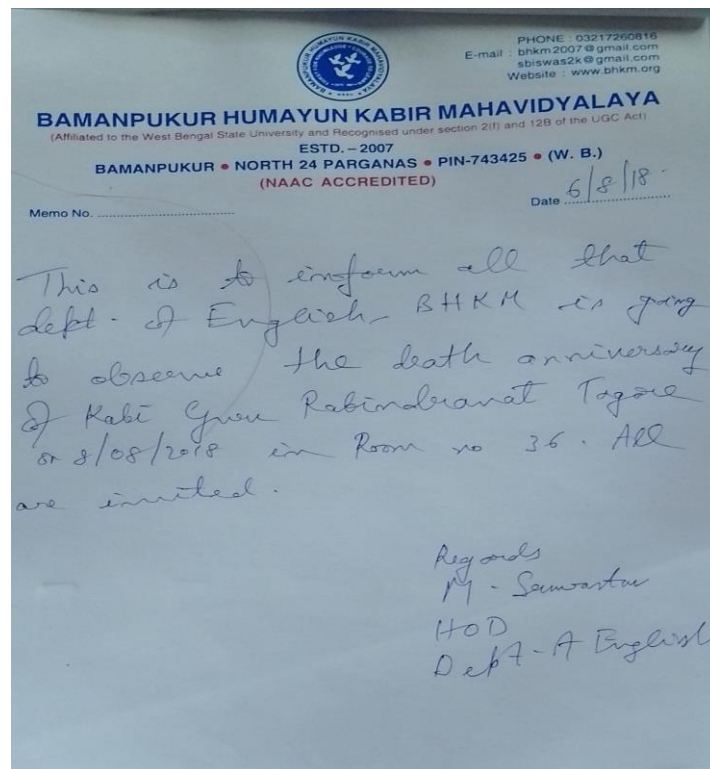 BAMANPUKUR HUMAYUN KABIR MAHAVIDYALAYA
PHONE : 03217260816
E-mail : bhkm2007@gmail.com
sbiswas2k@gmail.com
Website : www.bhkm.org
BAMANPUKUR HUMAYUN KABIR MAHAVIDYALAYA
(Affiliated to the West Bengal State University and Recognised under section 2(f) and 12B of the UGC Act)
ESTD. – 2007
BAMANPUKUR • NORTH 24 PARGANAS • PIN-743425 • (W. B.)
(NAAC ACCREDITED)
Memo No. ........................................
Date 6/8/18
This is to inform all that
dept. of English, BHKM is going
to observe the death anniversary
of Kabi Guru Rabindranat Tagore
on 8/08/2018 in Room no 36. All
are invited.
Regards
M.
HOD
Dept. of English